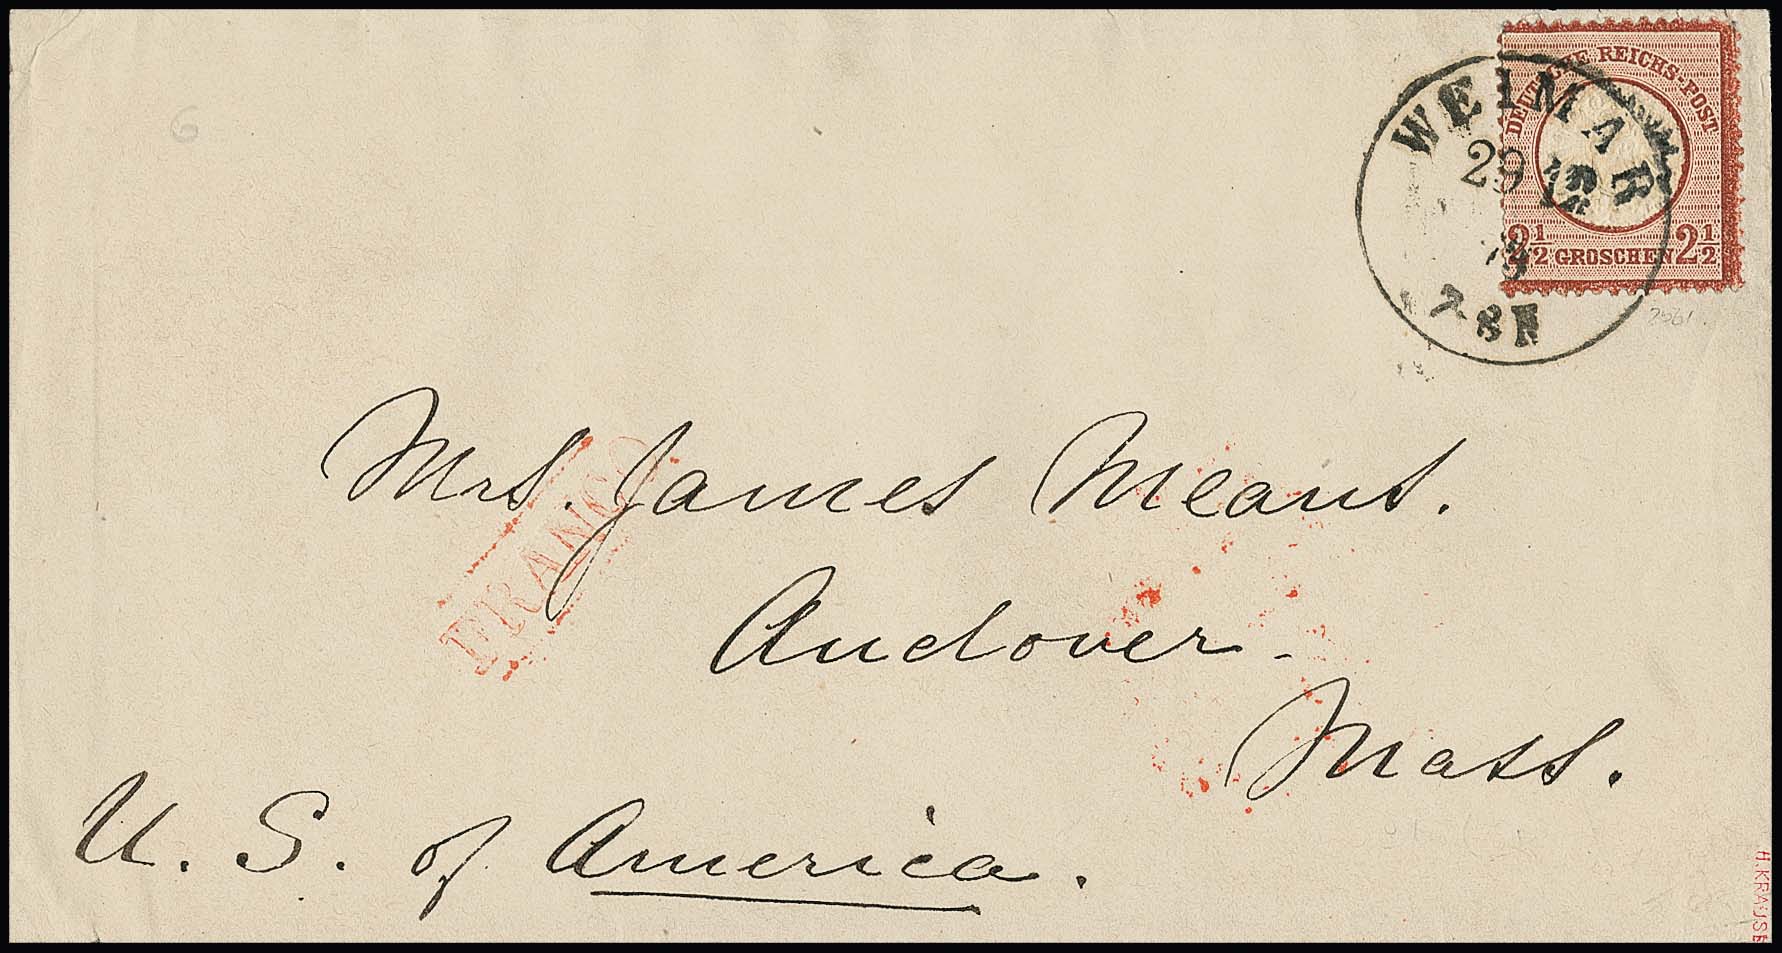 DEUTSCHE REICHS-POST
2½ GROSCHEN 2½
WEIMAR
29
7-8 N
FRANCO
Mrs. James Means.
Andover.
Mass.
U. S. of America.
H. KRAUSE
6